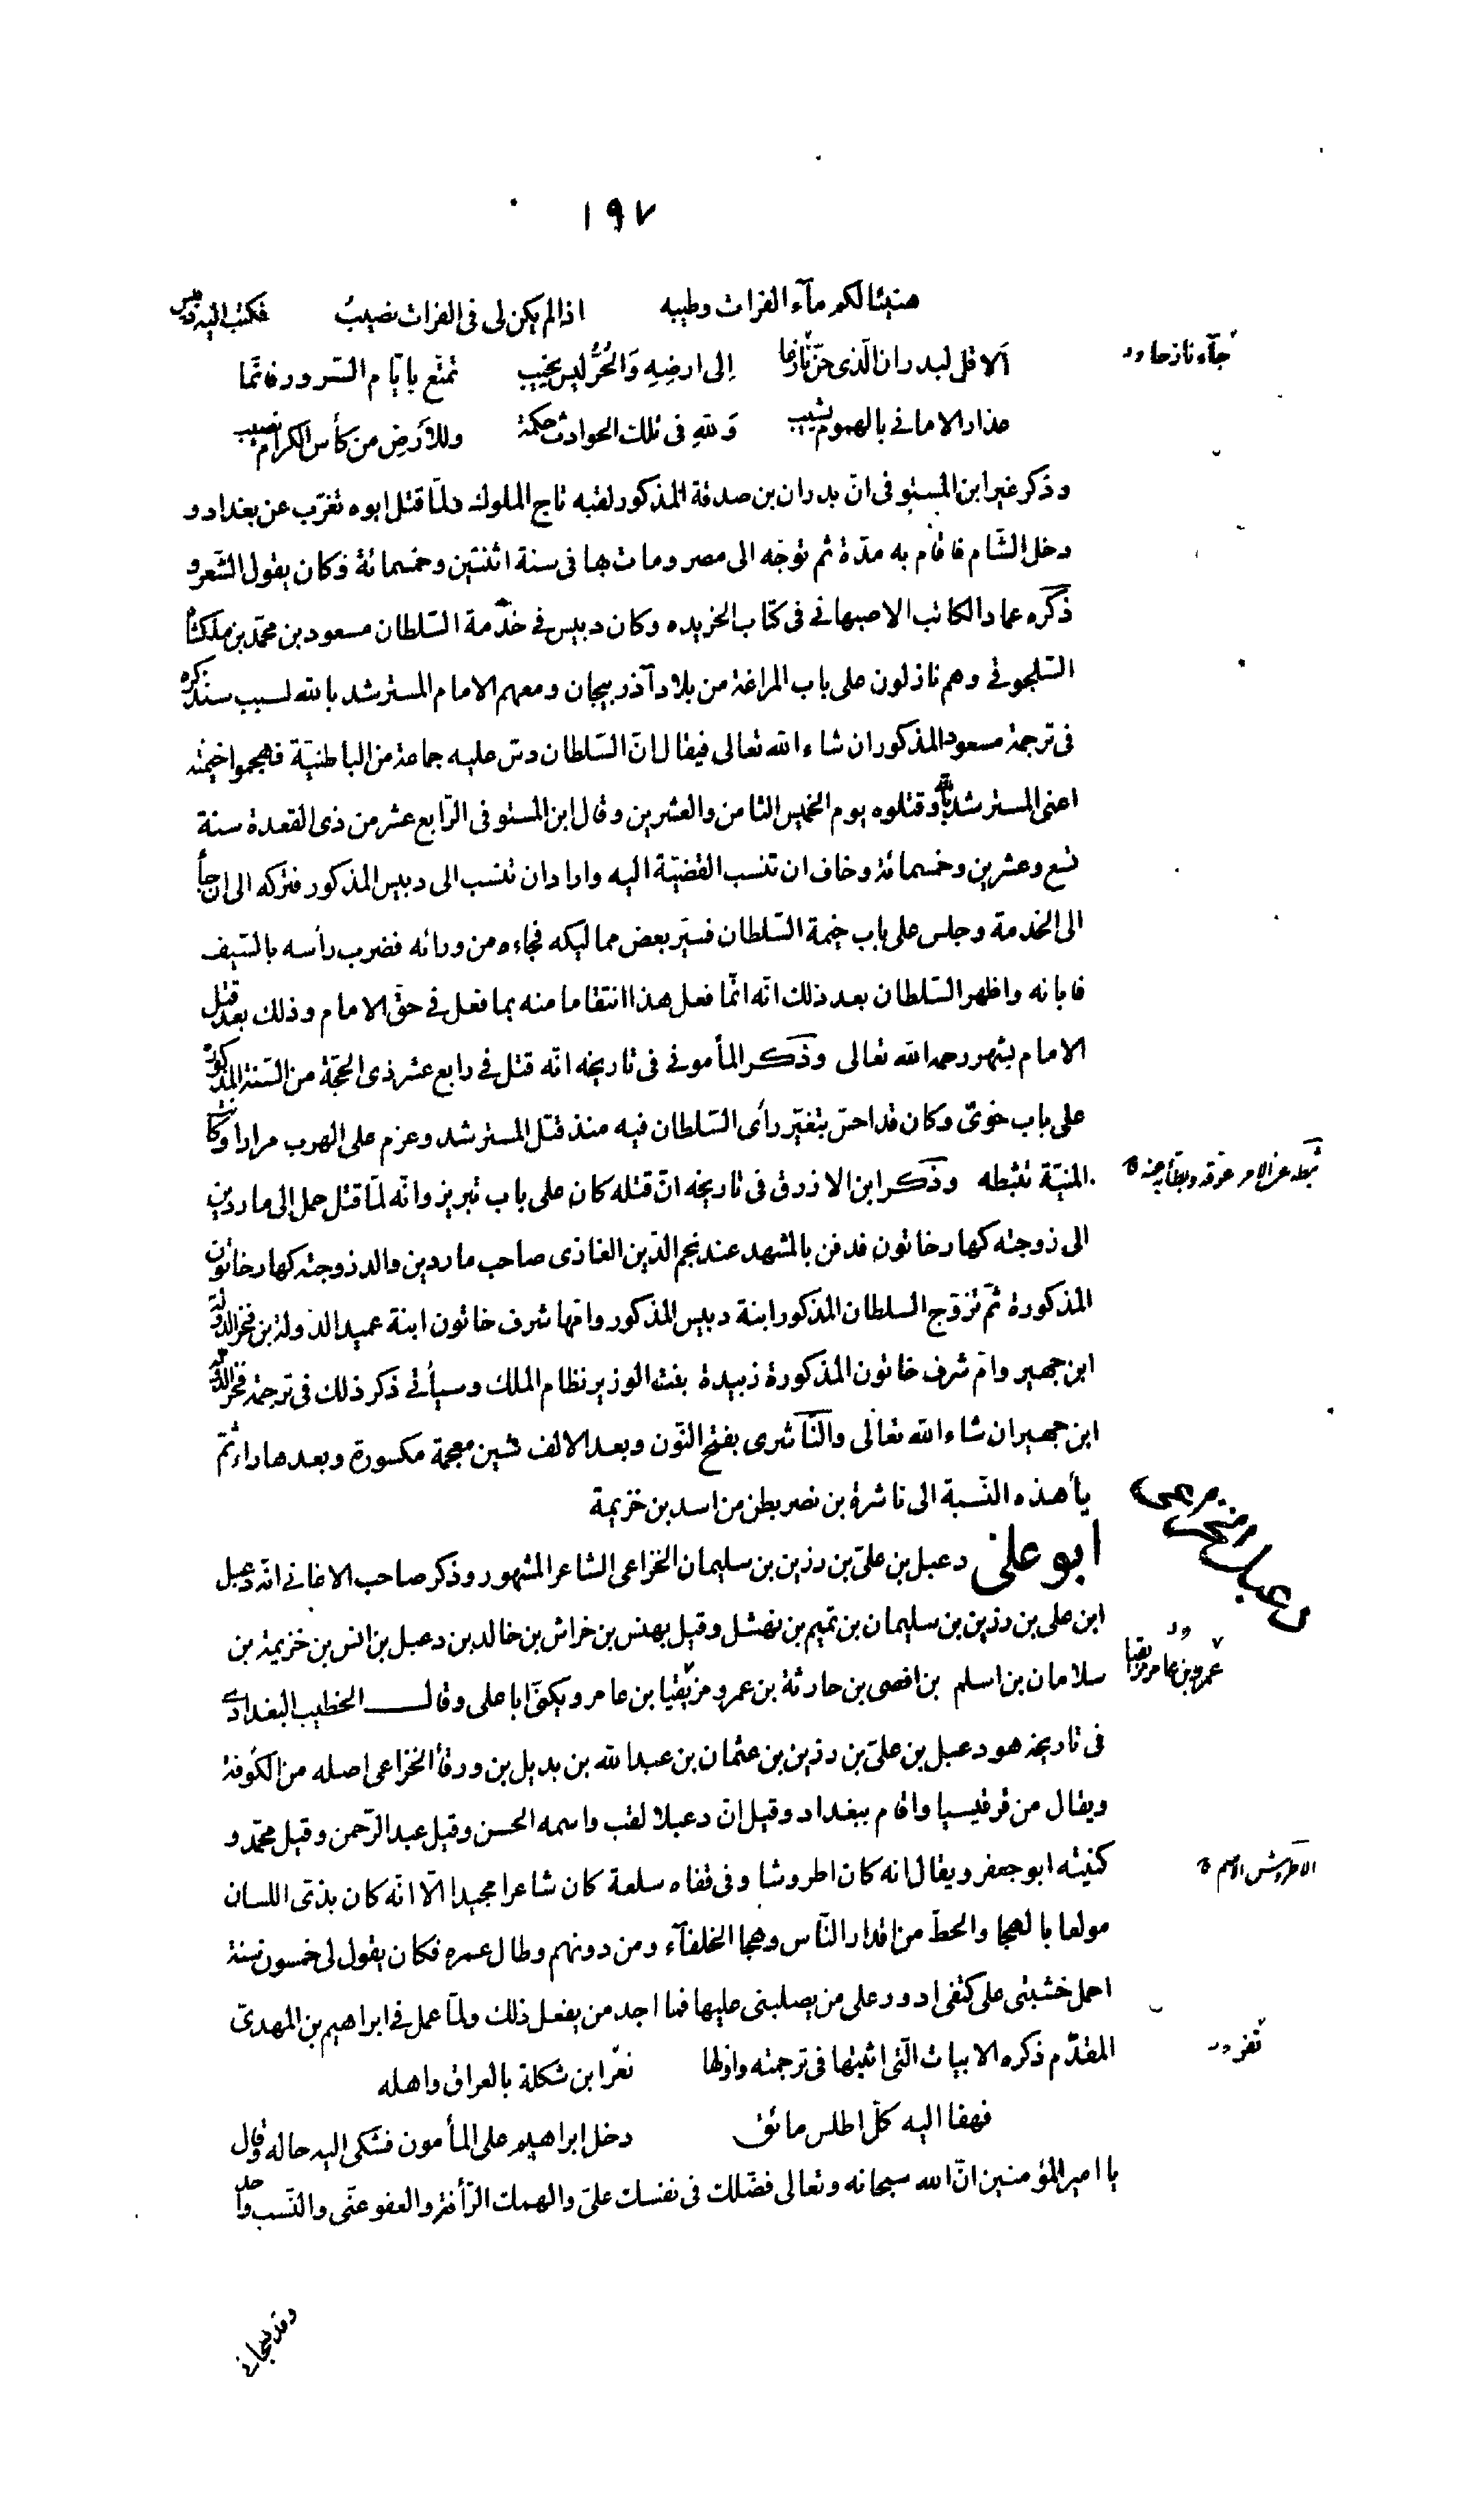 ١٩٧
هنيئا لكم مآء الفرات وطيبه اذا لم يكن لى فى الفرات نصيبُ فكتب اليه دبيس
اَلا قل لبدران الّذى حنّ نازعا اِلى ارضِهِ وَالحُرُّ ليس يخيب تمتّع بايّام السّرور فانّما
جآء نازحا ور
عذار الامانى بالهموم يشيب وَللهِ فى تلك الحوادث حكمة وللاَرضِ من كأس الكرام نصيب
وذكر غير ابن المستوفى انّ بدران بن صدقة المذكور لقبه تاج الملوك ولمّا قتل ابوه تغرّب عن بغداد و
دخل الشّام فاقام به مدّة ثم توجّه الى مصر ومات بها فى سنة اثنتين وخمسمائة وكان يقول الشّعر و
ذكره عماد الكاتب الاصبهانى فى كتاب الخريده وكان دبيس فى خدمة السّلطان مسعود بن محمّد بن ملكشاه
السّلجوقى وهم نازلون على باب المراغة من بلاد آذربيجان ومعهم الامام المسترشد بالله لسبب سنذكره
فى ترجمة مسعود المذكور ان شاء الله تعالى فيقال انّ السّلطان دسّ عليه جماعة من الباطنيّة فهجموا خيمته
اعنى المسترشد بالله وقتلوه يوم الخميس الثامن والعشرين وقال ابن المستوفى الرّابع عشر من ذى القعدة سنة
تسع وعشرين وخمسمائة وخاف ان تنسب القضيّة اليه واراد ان تنسب الى دبيس المذكور فتركه الى ان جأ
الى الخدمة وجلس على باب خيمة السّلطان فسيّر بعض مماليكه فجاءه من ورائه فضرب رأسه بالسّيف
فابانه واظهر السّلطان بعد ذلك انّه انّما فعل هذا انتقاما منه بما فعل فى حقّ الامام وذلك بعد قتل
الامام بشهر رحمه الله تعالى وذكر المأمونى فى تاريخه انّه قتل فى رابع عشر ذى الحجّة من السّنة المذكورة
على باب خوىّ وكان قد احسّ بتغيّر رأى السّلطان فيه منذ قتل المسترشد وعزم على الهرب مرارا وكانت
المنيّة تثبطه وذكر ابن الازرق فى تاريخه انّ قتله كان على باب تبريز وانّه لمّا قتل حمل الى ماردين
ثبطه عن الامر عوقه وبطّأ به عنه
الى زوجته كهارخاتون فدفن بالمشهد عند نجم الدّين الغازى صاحب ماردين والد زوجته كهارخاتون
المذكورة ثمّ تزوّج السلطان المذكور ابنة دبيس المذكور وامّها شرف خاتون ابنة عميد الدولة بن فخر الدولة
ابن جهير وامّ شرف خاتون المذكورة زبيدة بنت الوزير نظام الملك وسيأتى ذكر ذلك فى ترجمة فخر الدولة
ابن جهير ان شاء الله تعالى والنّاشرى بفتح النّون وبعد الالف شين معجمة مكسورة وبعدها راء ثمّ
يأ هذه النّسبة الى ناشرة بن نصر بطن من اسد بن خزيمة
دعبل الخزاعى
ابو على دعبل بن علىّ بن رزين بن سليمان الخزاعى الشاعر المشهور وذكر صاحب الاغانى انّه دعبل
ابن على بن رزين بن سليمان بن تميم بن نهشل وقيل بهنس بن خراش بن خالد بن دعبل بن انس بن خزيمة بن
سلامان بن اسلم بن افصى بن حارثة بن عمرو مزيقيا بن عامر ويكنّى ابا على وقال الخطيب البغدادى
عمرو بن عامر مزيقيا ور
فى تاريخه هو دعبل بن علىّ بن رزين بن عثمان بن عبد الله بن بديل بن ورقأ الخزاعى اصله من الكوفة
ويقال من قرقيسيا واقام ببغداد وقيل انّ دعبلا لقب واسمه الحسن وقيل عبد الرّحمن وقيل محمّد و
كنيته ابو جعفر ويقال انه كان اطروشا وفى قفاه سلعة كان شاعرا مجيدا الّا انّه كان بذىّ اللسان
الاطروش الاصم
مولعا بالهجا والحطّ من اقدار النّاس وهجا الخلفآء ومن دونهم وطال عمره فكان يقول لى خمسون سنة
احمل خشبتى على كتفى ادور على من يصلبنى عليها فما اجد من يفعل ذلك ولمّا عمل فى ابراهيم بن المهدىّ
المقدّم ذكره الابيات الّتى اثبتها فى ترجمته واوّلها نعرّ ابن شكلة بالعراق واهله
نفر ور
فهفا اليه كلّ اطلس مائق دخل ابراهيم على المأمون فشكى اليه حاله وقال
يا امير المؤمنين انّ الله سبحانه وتعالى فضّلك فى نفسك علىّ والهمك الرّأفة والعفو عنّى والنّسب واحد
وقد هجانى